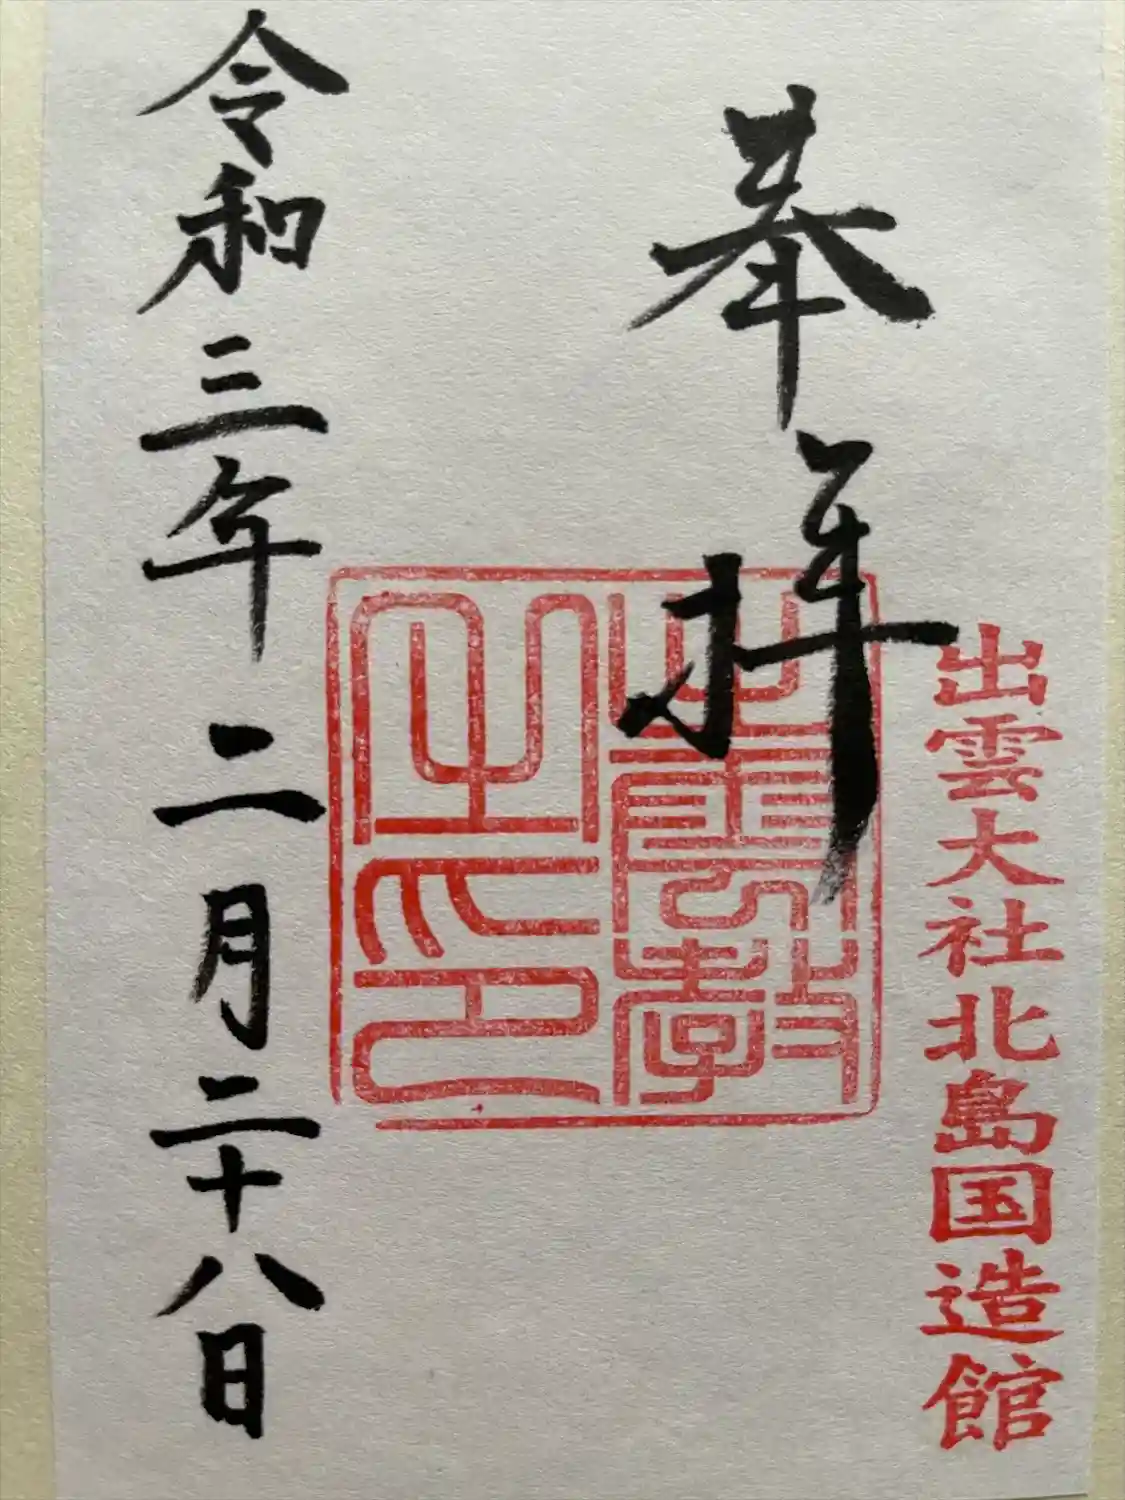 奉拝
出雲大社北島国造館
出雲教
之印
令和三年二月二十八日